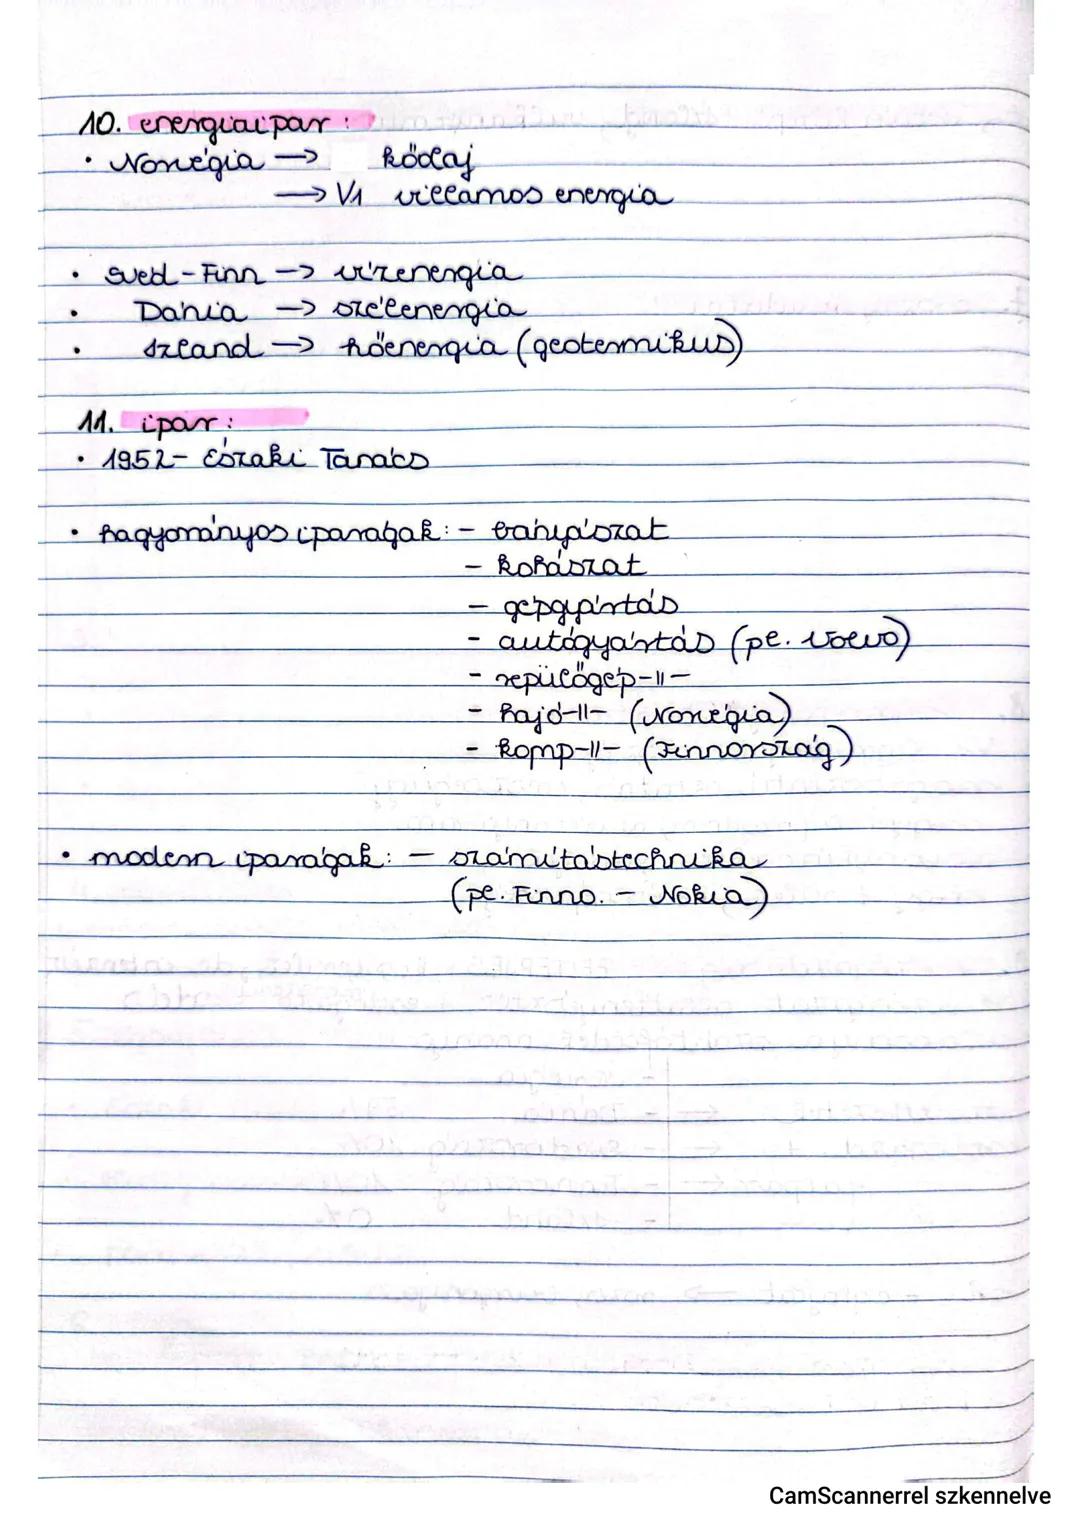 10. energiaipar :
• Norvégia → kőolaj
→ V1 villamos energia
• svéd-Finn → vízenergia
• Dánia → szélenergia
• Izland → hőenergia (geotermikus)
11. ipar :
• 1952- Északi Tanács
• hagyományos iparágak: - bányászat
- kohászat
- gépgyártás
- autógyártás (pl. Volvo)
- repülőgép-II-
- hajó-II- (Norvégia)
- komp-II- (Finnország)
• modern iparágak: - számítástechnika
(pl. Finno. - Nokia)
CamScannerrel szkennelve